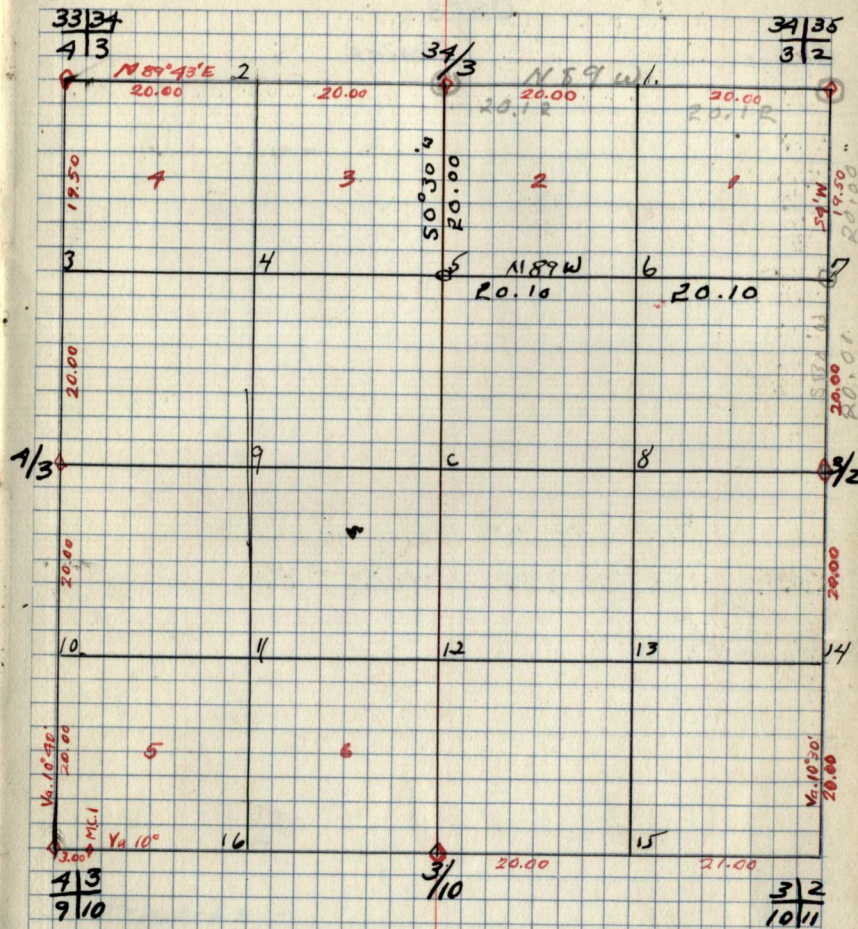 33 34 34 35
4 3 34/3 3 2
N 89°43'E 2 N 89 W 1.
20.00 20.00 20.00 20.00
20.12 20.12
19.50 4 3 S0°30'W 20.00 2 1 S4'W 19.50 20.00
3 4 5 N 89 W 6 7
20.10 20.10
20.00 20.00
4/3 9 C 8 3/2
20.00 20.00
10 11 12 13 14
Va. 10°40' 20.00 5 6 Va. 10°30' 20.00
M.C.1
3.00 Va 10° 16 15
20.00 21.00
4 3 3/10 3 2
9 10 10 11